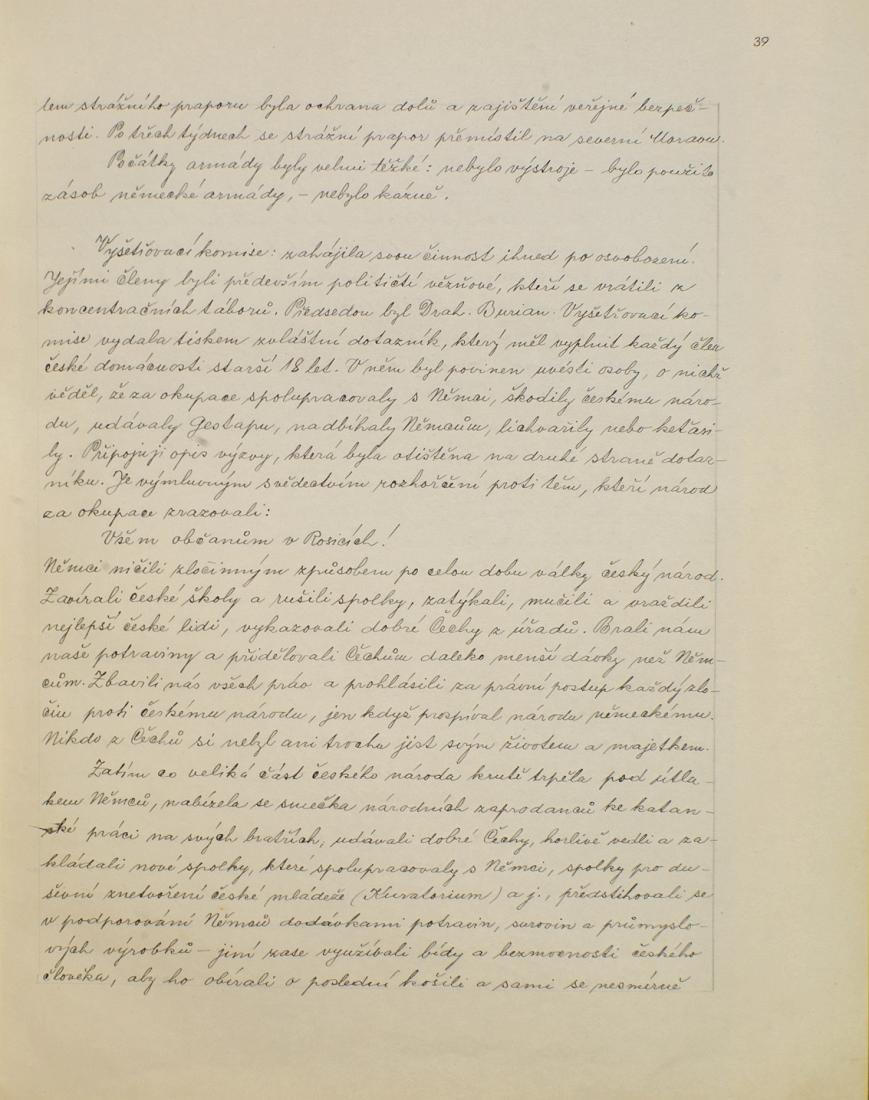 39
lem strážního praporu byla ochrana dolů a zajištění veřejné bezpeč-
nosti. Po třech týdnech se strážní prapor přemístil na severní Moravu.
Počátky armády byly velmi těžké: nebylo výstroje – bylo použito
zásob německé armády, – nebylo kázně.
Vyšetřovací komise: zahájila svou činnost ihned po osvobození.
Jejími členy byli především političtí věznové, kteří se vrátili z
koncentračních táborů. Předsedou byl Drah. Burian. Vyšetřovací ko-
mise vydala tiskem zvláštní dotazník, který měl vyplnit každý člen
české domácnosti starší 18 let. V něm byl povinen uvésti osoby, o nichž
věděl, že za okupace spolupracovaly s Němci, škodily českému náro-
du, udávaly Gestapu, nadbíhaly Němcům, lichvařily nebo keťasi-
ly. Připojuji opis výzvy, která byla otištěna na druhé straně dotaz-
níku. Je výmluvným svědectvím rozhořčení proti těm, kteří národ
za okupace zrazovali:
Všem občanům v Rosicích!
Němci ničili zločinným způsobem po celou dobu války český národ.
Zavírali české školy a rušili spolky, zatýkali, mučili a vraždili
nejlepší české lidi, vykazovali dobré Čechy z úřadů. Brali nám
naše potraviny a přidělovali Čechům daleko menší dávky než Něm-
cům. Zbavili nás všech práv a prohlásili za právní postup každý zlo-
čin proti českému národu, jen když prospíval národu německému.
Nikdo z Čechů si nebyl ani trochu jist svým životem a majetkem.
Zatím co veliká část českého národa krutě trpěla pod útla-
kem Němců, nabízela se smečka národních zaprodanců ke katan-
ské práci na svých bratřích, udávali dobré Čechy, horlivě vedli a za-
kládali nové spolky, které spolupracovaly s Němci, spolky pro du-
ševní znetvoření české mládeže (Kuratorium) a j., předstihovali se
v podporování Němců dodávkami potravin, surovin a průmyslo-
vých výrobků – jiní zase využívali bídy a bezmocnosti českého
člověka, aby ho obírali o poslední košili a sami se nesmírně